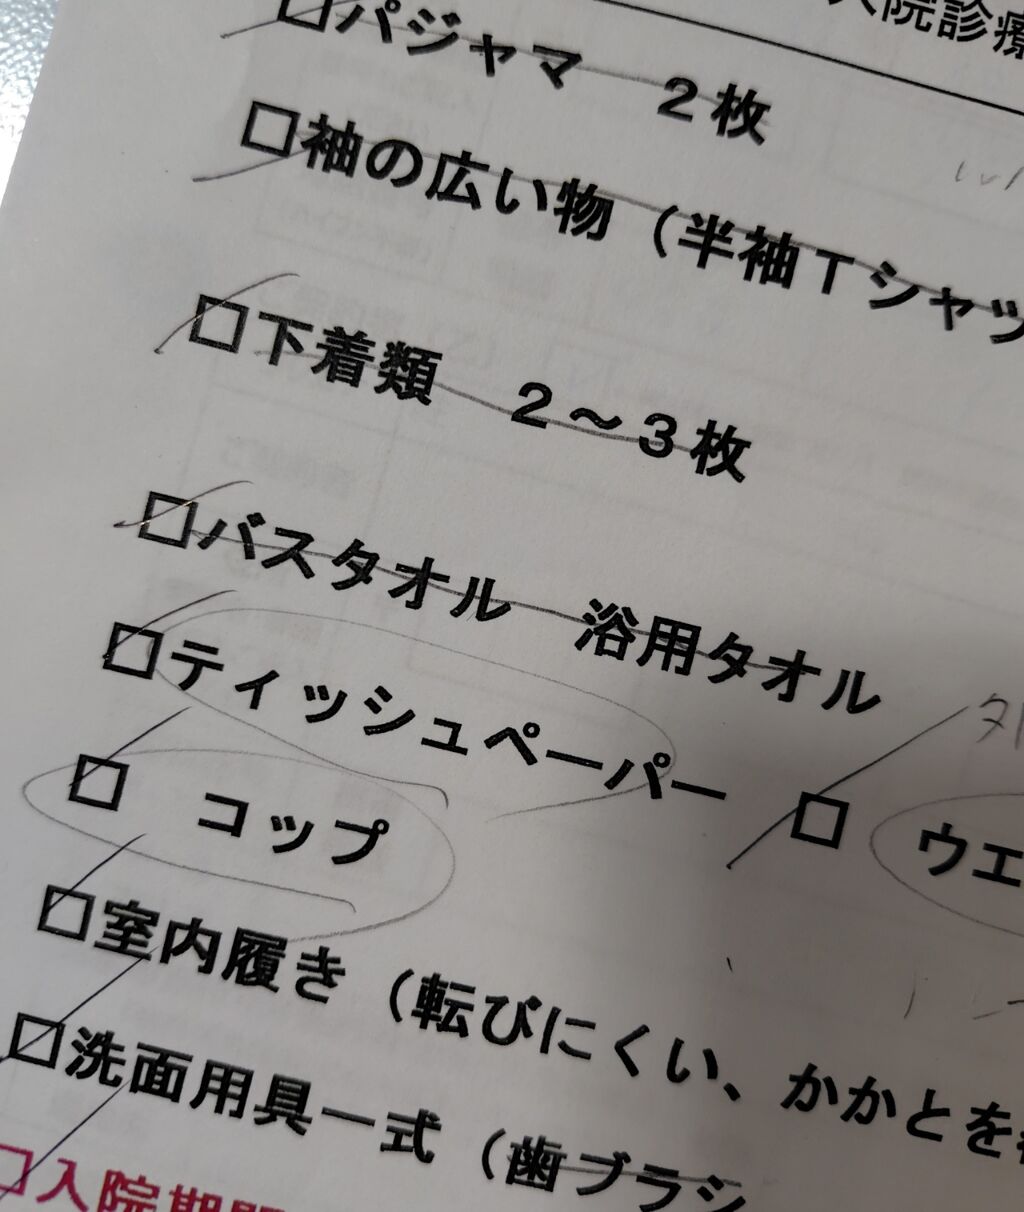 入院診療
□パジャマ　２枚
□袖の広い物（半袖Ｔシャツ
□下着類　２～３枚
□バスタオル　浴用タオル
□ティッシュペーパー
□　コップ　□　ウエ
□室内履き（転びにくい、かかとを
□洗面用具一式（歯ブラシ
□入院期間